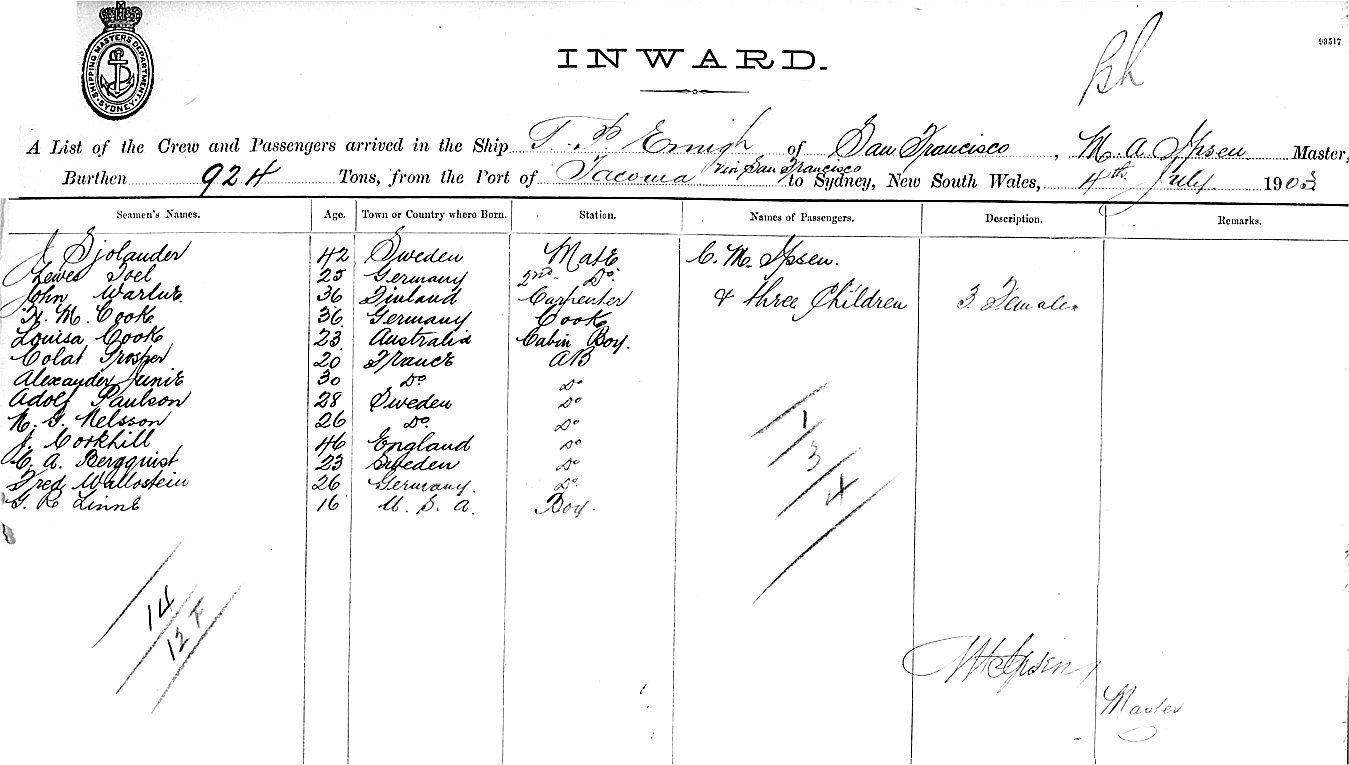 SHIPPING MASTERS DEPARTMENT SYDNEY
93517
INWARD.
A List of the Crew and Passengers arrived in the Ship T. P. Emigh of San Francisco, M. A. Ipsen Master,
Burthen 924 Tons, from the Port of Tacoma via San Francisco to Sydney, New South Wales, 4th July 1903
Seamen's Names. Age. Town or Country where Born. Station. Names of Passengers. Description. Remarks.
J Sjolander 42 Sweden Mate C. M. Ipsen.
Lewes Toel 25 Germany 2nd Do.
John Warlue 36 Finland Carpenter & three Children 3 Females
H. M. Cook 36 Germany Cook
Louisa Cook 23 Australia Cabin Boy.
Colat Prosper 20 France AB
Alexander Junie 30 Do Do
Adolf Paulson 28 Sweden Do
N. G. Nelsson 26 Do. Do
J. Corkhill 46 England Do
C. A. Bergquist 23 Sweden Do
Fred Wallostein 26 Germany. Do.
G. R Linne 16 U. S. A. Boy.
1
3
4
14
12 F
M A Ipsen
Master